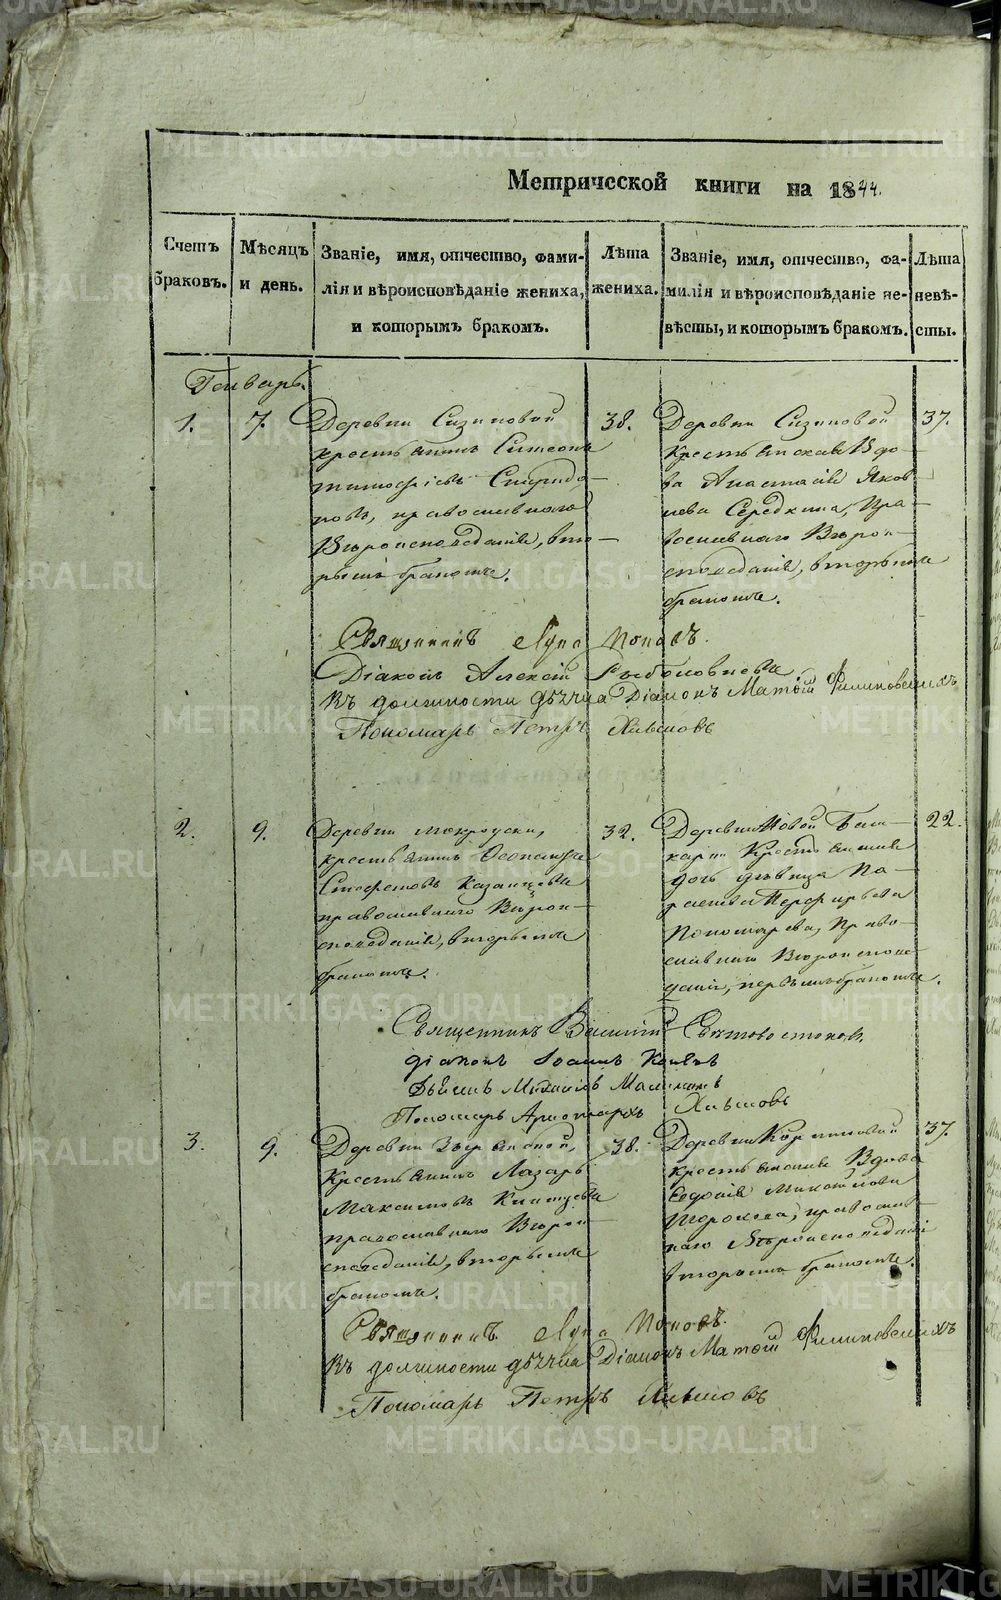 Метрической книги на 1844.
Счетъ браковъ.
Мѣсяцъ и день.
Званіе, имя, отчество, фами-
лія и вѣроисповѣданіе жениха,
и которымъ бракомъ.
Лѣта
жениха.
Званіе, имя, отчество, фа-
милія и вѣроисповѣданіе не-
вѣсты, и которымъ бракомъ.
Лѣта
невѣ-
сты.
Генварь.
1.
7.
Деревни Сизиковой
крестьянинъ Симеонъ
Тимофѣевъ Спиридо-
новъ, православнаго
Вѣроисповеданія, вто-
рымъ бракомъ.
38.
Деревни Сизиковой
крестьянская Вдо-
ва Анастасія Яков
лева Середкина, Пра-
вославнаго Вѣрои-
споведанія, вторымъ
бракомъ.
37.
Священникъ Лука Поповъ.
Діаконъ Алексій
Въ должности дьячка Діаконъ Матѳій Филиповскихъ
Пономарь Петръ Хлыновъ
2.
9.
Деревни
крестьянинъ
Казанцевъ
православнаго Вѣрои-
споведанія, вторымъ
бракомъ.
32.
Деревни Новой
Крестьянская
дочь дѣвица Па-
расковья Перфирьева
Пономарева, Право-
славнаго Вѣроиспове
данія, первымъ бракомъ.
22.
Священникъ Василій
діаконъ Іоаннъ
Михаилъ
Пономарь Аристархъ Хлыновъ
3.
9.
Деревни
крестьянинъ Лазарь
Максимовъ
православнаго Вѣрои-
споведанія, вторымъ
бракомъ.
38.
Деревни
крестьянская Вдова
Евдокія
православ-
наго Вѣроисповеданія
вторымъ бракомъ.
37.
Священникъ Лука Поповъ.
Въ должности дьячка Діаконъ Матѳій Филиповскихъ
Пономарь Петръ Хлыновъ
METRIKI.GASO-URAL.RU